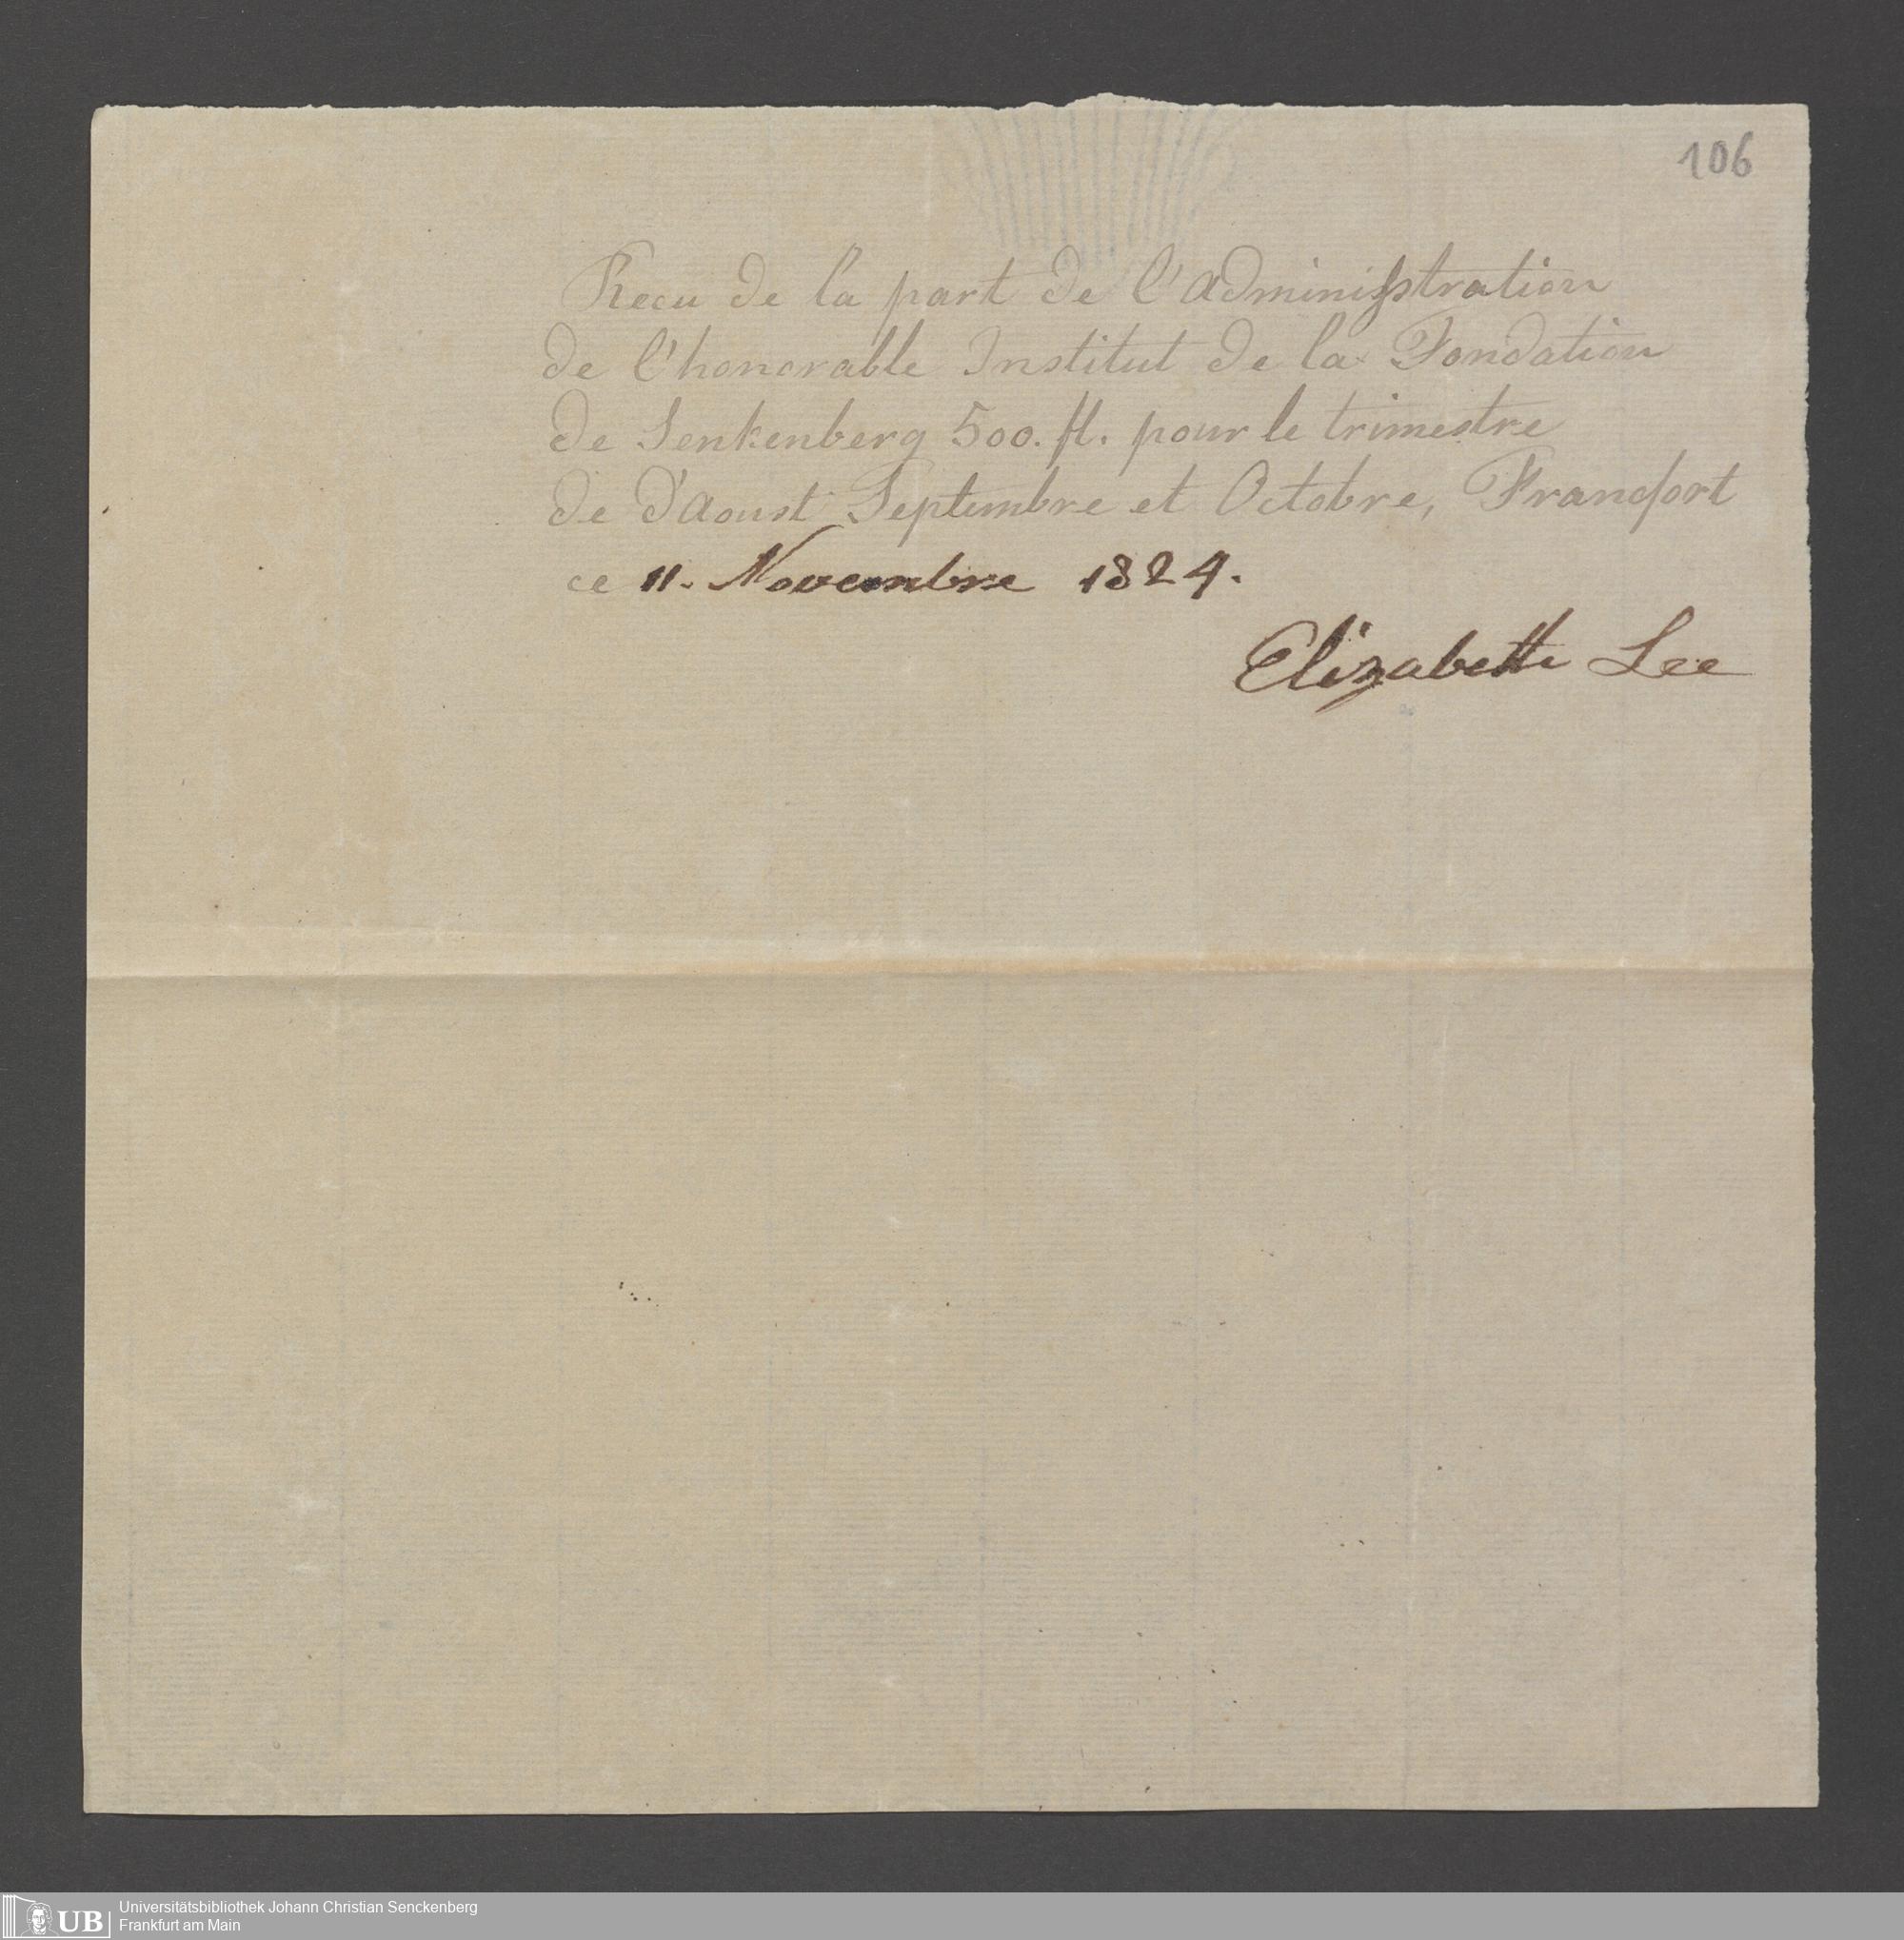 106
Recu de la part de l'Administration
de l'honorable Institut de la Fondation
de Senkenberg 500. fl. pour le trimestre
de d'Aoust Septembre et Octobre, Francfort
ce 11. Novembre 1824.
Elizabeth Lee
UB
Universitätsbibliothek Johann Christian Senckenberg
Frankfurt am Main